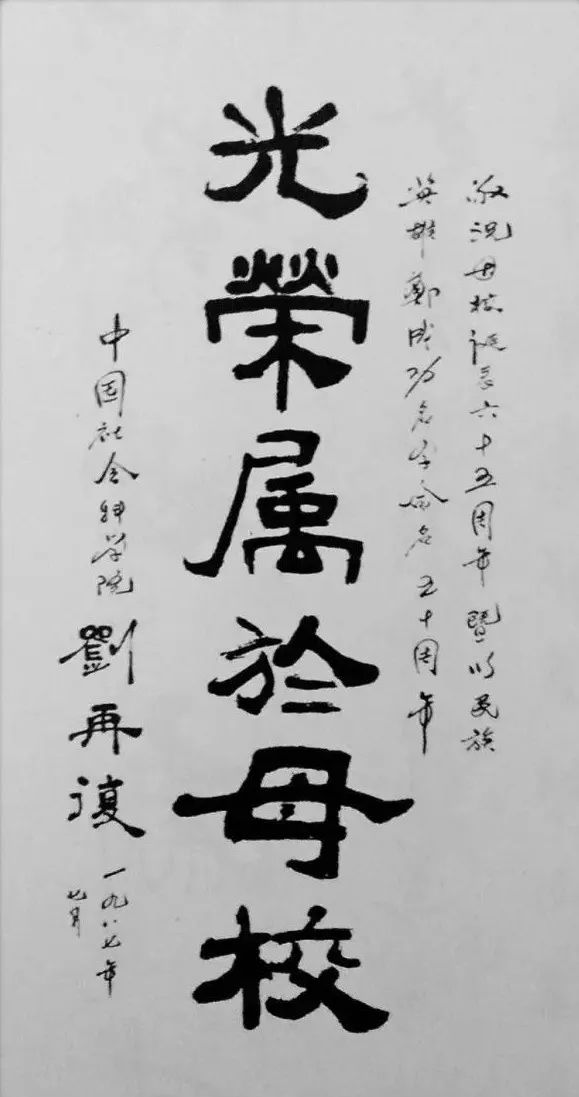 敬祝母校誕辰六十五周年暨以民族
英雄鄭成功名字命名五十周年
光榮属於母校
中国社会科学院 劉再復 一九八七年
七月